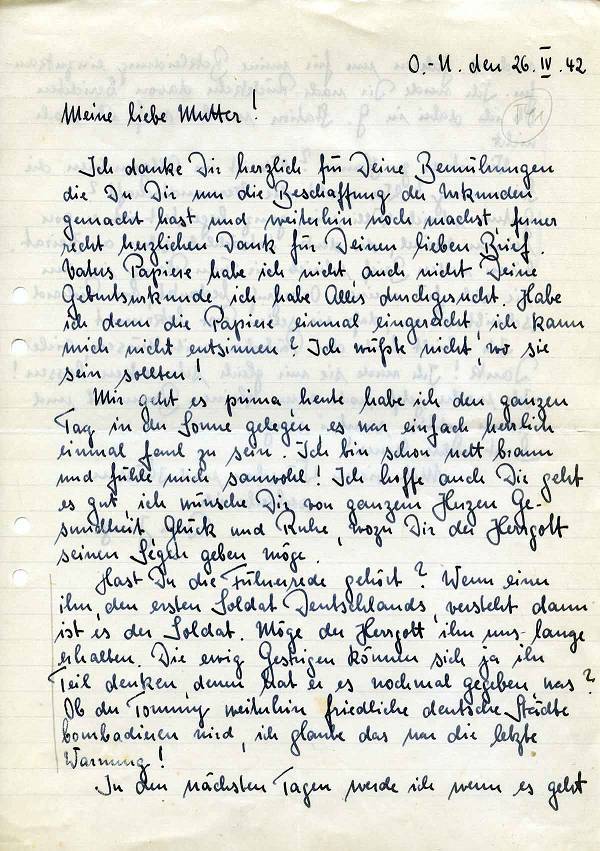 O.-U. den 26.IV.42
Meine liebe Mutter!
Ich danke Dir herzlich für Deine Bemühungen
die Du Dir um die Beschaffung der Urkunden
gemacht hast und weiterhin noch machst, ferner
recht herzlichen Dank für Deinen lieben Brief.
Vaters Papiere habe ich nicht, auch nicht Deine
Geburtsurkunde, ich habe Alles durchgesucht. Habe
ich denn die Papiere einmal eingereicht, ich kann
mich nicht entsinnen? Ich wüßte nicht, wo sie
sein sollten!
Mir geht es prima, heute habe ich den ganzen
Tag in der Sonne gelegen, es war einfach herrlich
einmal faul zu sein. Ich bin schon nett braun
und fühle mich sauwohl! Ich hoffe auch Dir geht
es gut, ich wünsche Dir von ganzem Herzen Ge-
sundheit, Glück und Ruhe, wozu Dir der Herrgott
seinen Segen geben möge.
Hast Du die Führerrede gehört? Wenn einer
ihn, den ersten Soldat Deutschlands, versteht dann
ist es der Soldat. Möge der Herrgott ihn uns lange
erhalten. Die ewig Gestrigen können sich ja ihr
Teil denken, denen hat er es nochmal gegeben, was?
Ob der Tommy weiterhin friedliche deutsche Städte
bombadieren wird, ich glaube das war die letzte
Warnung!
In den nächsten Tagen werde ich wenn es geht